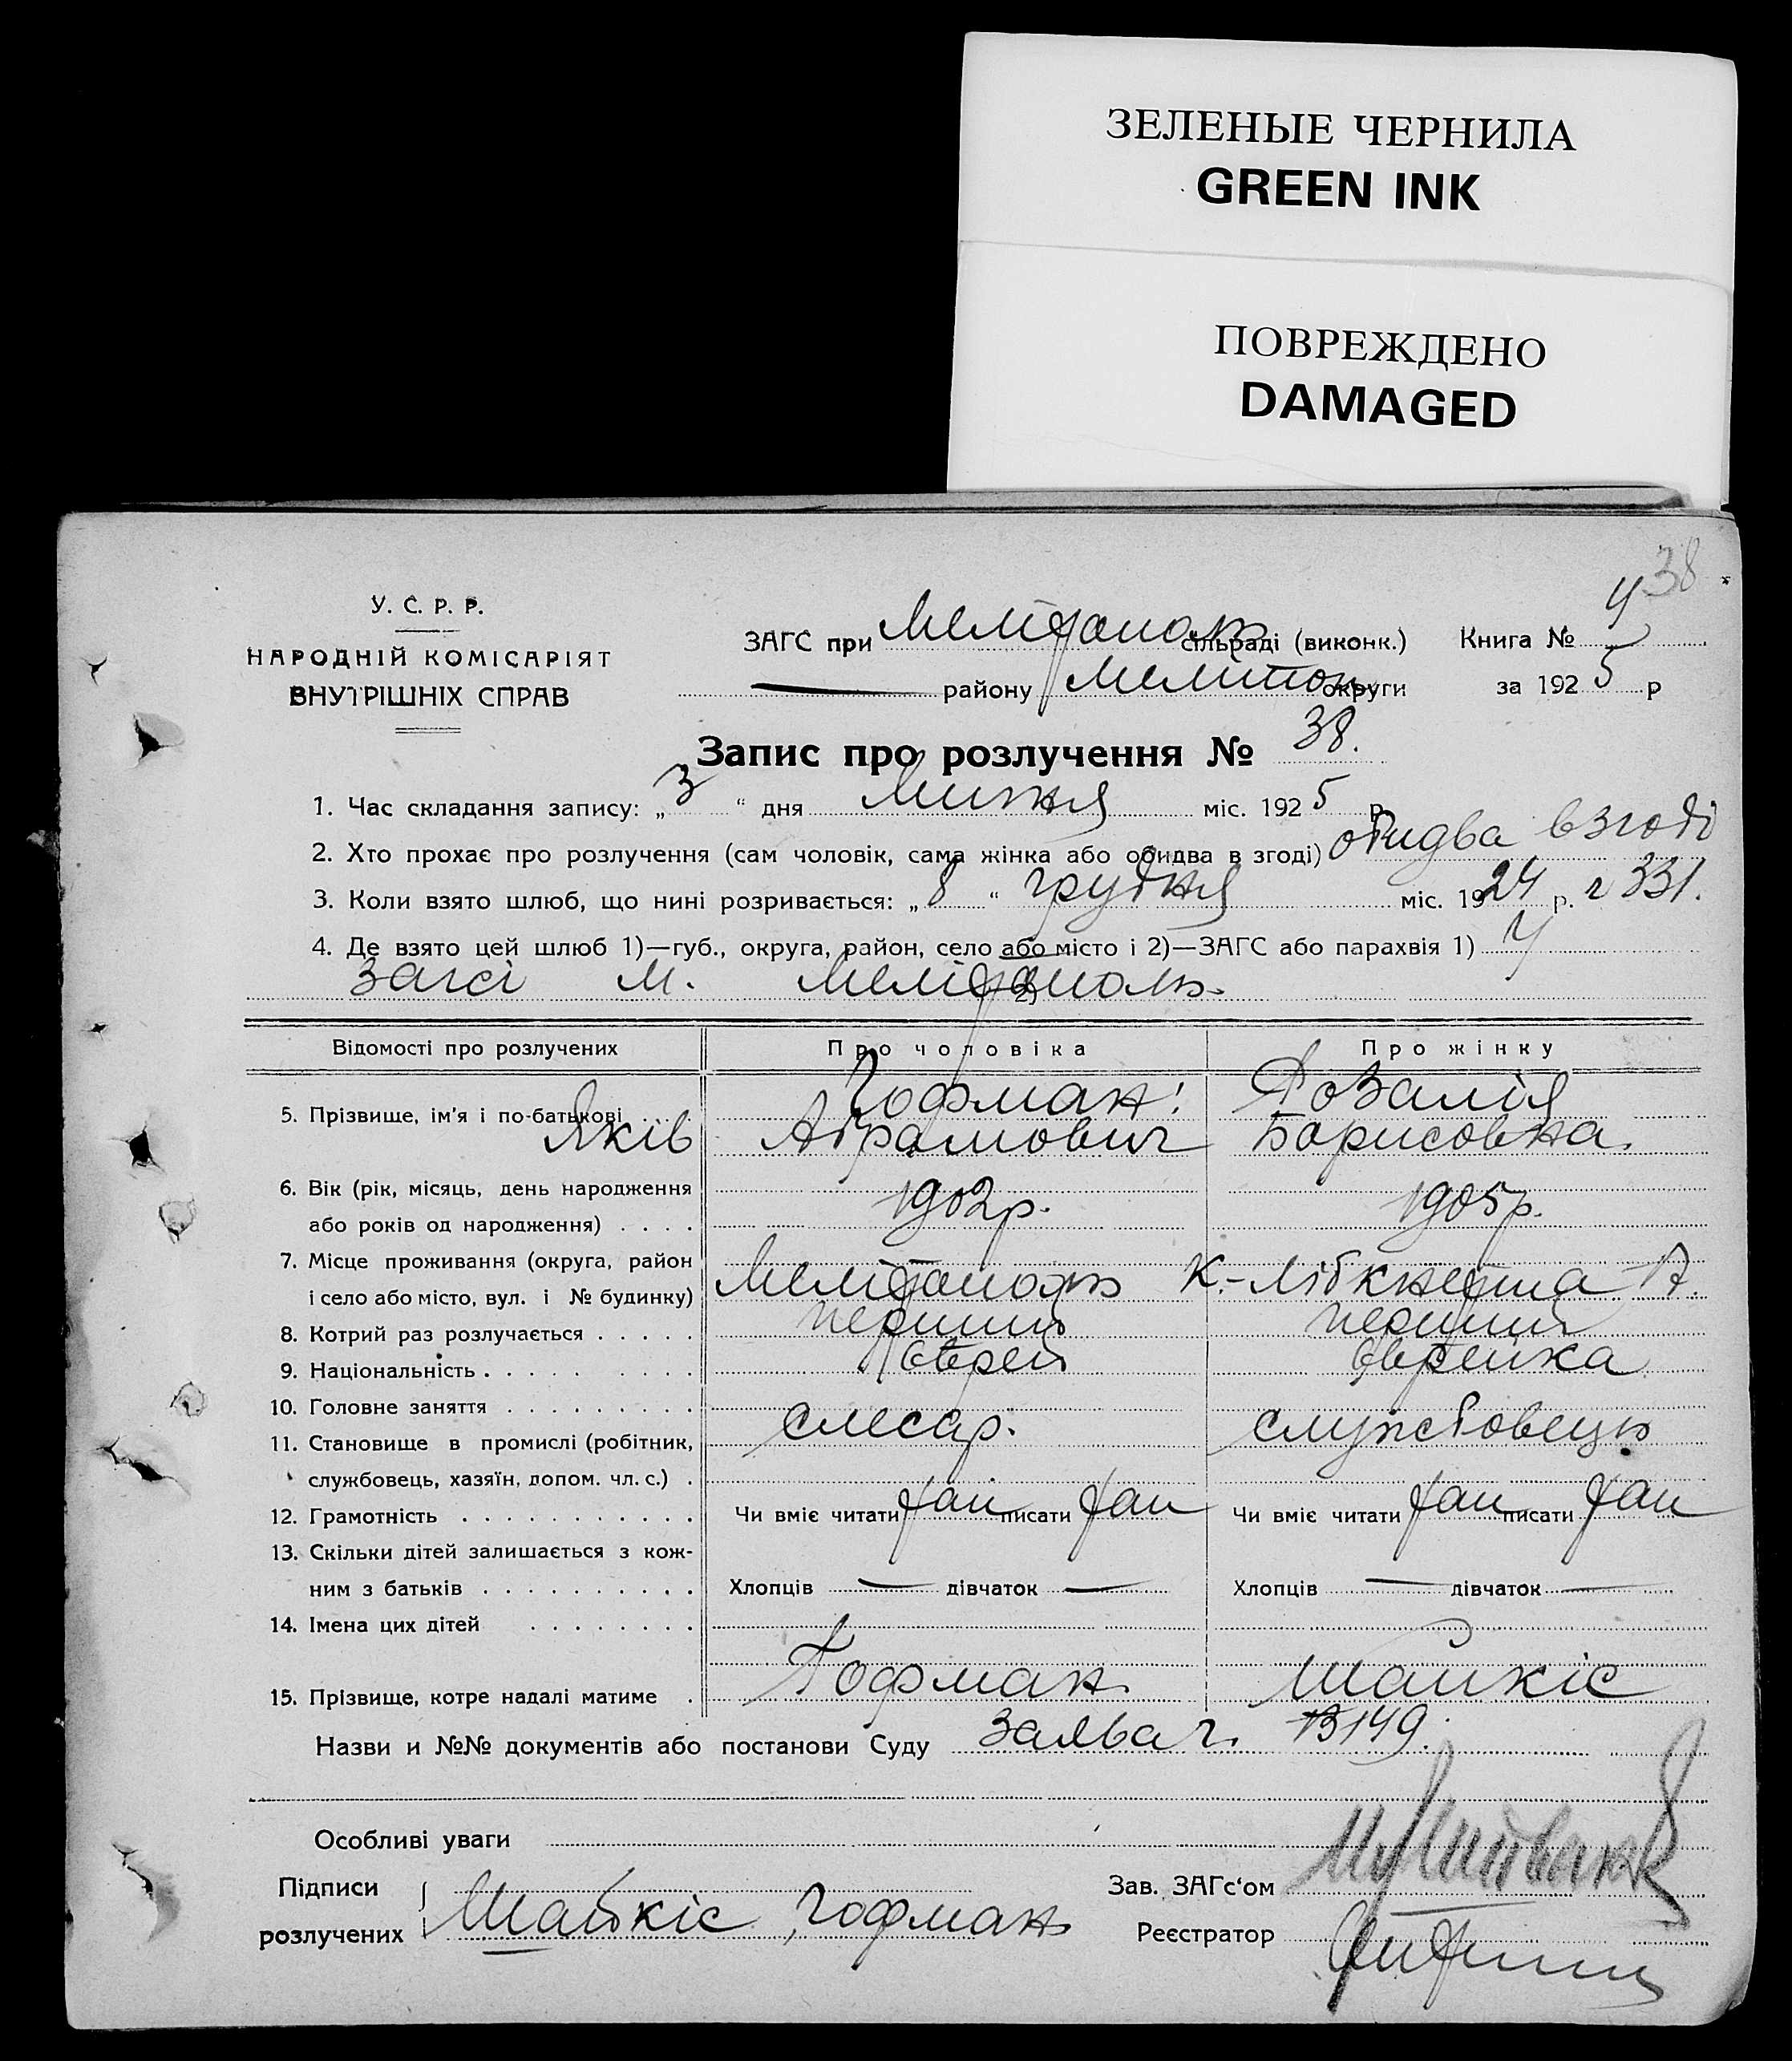 ЗЕЛЕНЫЕ ЧЕРНИЛА
GREEN INK
ПОВРЕЖДЕНО
DAMAGED
38
У. С. Р. Р.
НАРОДНІЙ КОМІСАРІЯТ
ВНУТРІШНІХ СПРАВ
ЗАГС при Мелітополь сільраді (виконк.) Книга № 4
— району Мелітоп округи за 1925 р
Запис про розлучення № 38.
1. Час складання запису: „3“ дня Липня міс. 1925 р.
2. Хто прохає про розлучення (сам чоловік, сама жінка або обидва в згоді) обидва в згоді
3. Коли взято шлюб, що нині розривається: „8“ грудня міс. 1924 р. ч 331.
4. Де взято цей шлюб 1)—губ., округа, район, село або місто і 2)—ЗАГС або парахвія 1) У
Загсі м. Мелітополь. 2)
Відомості про розлучених Про чоловіка Про жінку
5. Прізвище, ім'я і по-батькові Гофман: Розалія
Яків Абрамович Борисовна.
6. Вік (рік, місяць, день народження
або років од народження) . . . . 1902р. 1905р.
7. Місце проживання (округа, район
і село або місто, вул. і № будинку) Мелітополь К.-Лібкнехта 17.
8. Котрий раз розлучається . . . . . перший перший
9. Національність . . . . . . . . . Єврей Єврейка
10. Головне заняття . . . . . . . . .
11. Становище в промислі (робітник, слесар. службовець
службовець, хазяїн, допом. чл. с.) .
12. Грамотність . . . . . . . . . . . Чи вміє читати так писати так Чи вміє читати так писати так
13. Скільки дітей залишається з кож-
ним з батьків . . . . . . . . . . Хлопців — дівчаток — Хлопців — дівчаток —
14. Імена цих дітей . . . . . . . .
15. Прізвище, котре надалі матиме . Гофман. Шайкіс
Назви и №№ документів або постанови Суду Заява ч. 13149.
Особливі уваги
Підписи Зав. ЗАГс'ом
розлучених Шайкіс, Гофман Реєстратор